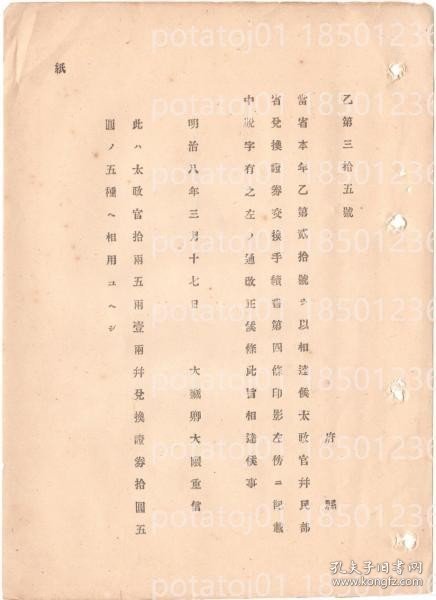 乙第三拾五號
府縣
當省本年乙第貳拾號ヲ以相達候太政官幷民部
省兌換證券交換手續書第四條印影左傍ニ記載
中脫字有之左ノ通改正候條此旨相達候事
明治八年三月十七日 大藏卿大隈重信
此ハ太政官拾兩五兩壹兩幷兌換證券拾圓五
圓ノ五種ヘ相用ユヘシ
紙
potatoj01 18501236
potatoj01 18501236
potatoj01 18501236
potatoj01 18501236
potatoj01 18501236
potatoj01 18501236
孔夫子旧书网
www.kongfz.com